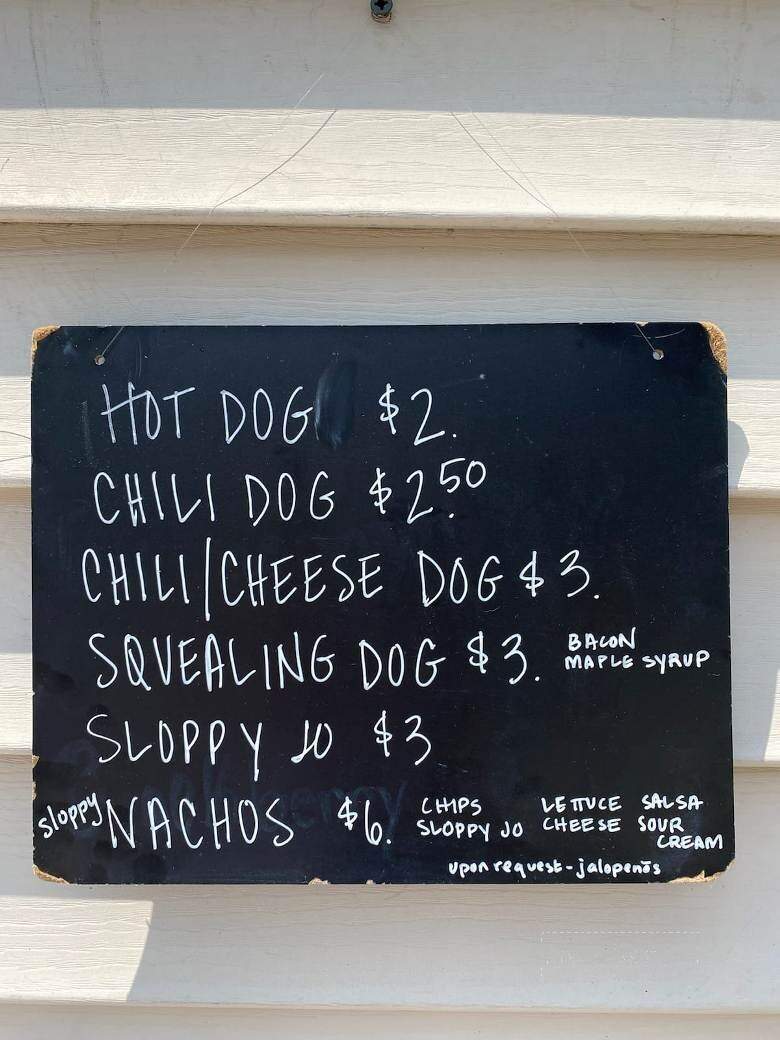 HOT DOG $2.
CHILI DOG $2.50
CHILI/CHEESE DOG $3.
SQUEALING DOG $3. BACON
MAPLE SYRUP
SLOPPY JO $3
sloppy NACHOS $6. CHIPS LETTUCE SALSA
SLOPPY JO CHEESE SOUR
CREAM
upon request-jalopenōs